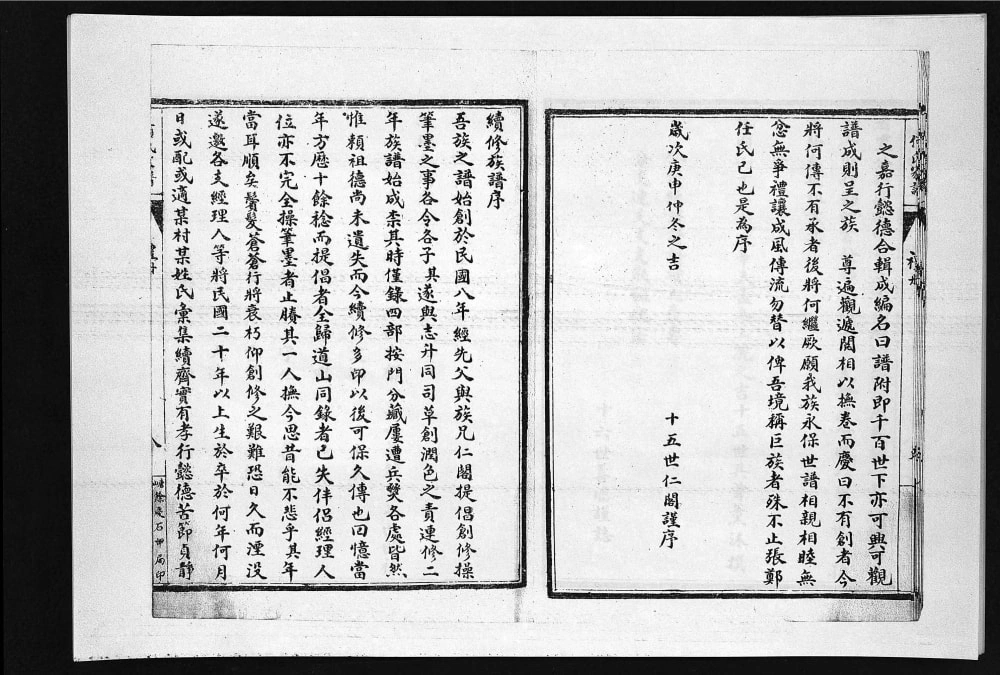 之嘉行懿德合輯成編名曰譜附即千百世下亦可興可觀
譜成則呈之族 尊遍觀遞閱相以撫卷而慶曰不有創者今
將何傳不有承者後將何繼厥願我族永保世譜相親相睦無
忿無爭禮讓成風傳流勿替以俾吾境稱巨族者殊不止張鄭
任氏已也是為序
歲次庚申仲冬之吉
十五世仁閣謹序
續修族譜序
吾族之譜始創於民國八年經先父與族兄仁閣提倡創修操
筆墨之事各令各子其遂與志升同司草創潤色之責連修二
年族譜始成柰其時僅錄四部按門分藏屢遭兵燹各處皆然
惟賴祖德尚未遺失而今續修多印以後可保久傳也回憶當
年方歷十餘稔而提倡者全歸道山同錄者已失伴侶經理人
位亦不完全操筆墨者止賸其一人撫今思昔能不悲乎其年
當耳順矣鬢髮蒼蒼行將衰朽仰創修之艱難恐日久而湮沒
遂邀各支經理人等將民國二十年以上生於卒於何年何月
日或配或適某村某姓氏彙集續齊實有孝行懿德苦節貞靜
石印局印